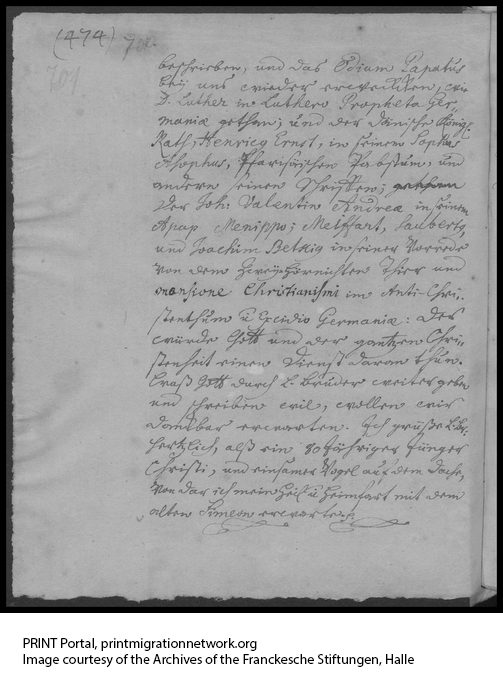 (474)
701
beschrieben, und das Odium Papatus
bey uns wieder erweckten, wie
D. Luther in Luthero Propheta Ger-
maniæ gethan; und der dänische Königl.
Rath, Henricg Ernst, in seinem Sophus
Asophus, Pharisäischen Pabstum, und
andern seinen Schrifften; gethan
Der Joh: Valentin Andreæ in seinem
Apap Menippo; Meiffart, Saubertg,
und Joachim Betkig in seiner Vorrede
von dem Zweyhörnichten Thier und
mansione Christianismi im Anti-Chri-
stenthum u Excidio Germaniæ: Der
würde Gott und der gantzen Chri-
stenheit einen Dienst daran thun.
Waß Gott durch E. Brüder weiter geben
und schreiben wil, wollen wir
danckbar erwarten. Ich grüße E. Br.
hertzlich, alß ein 80 Jähriger Jünger
Christi, und einsamer Vogel auf dem Dache,
von dar ich mein Heil u Heimfart mit dem
alten Simeon erwarte
PRINT Portal, printmigrationnetwork.org
Image courtesy of the Archives of the Franckesche Stiftungen, Halle